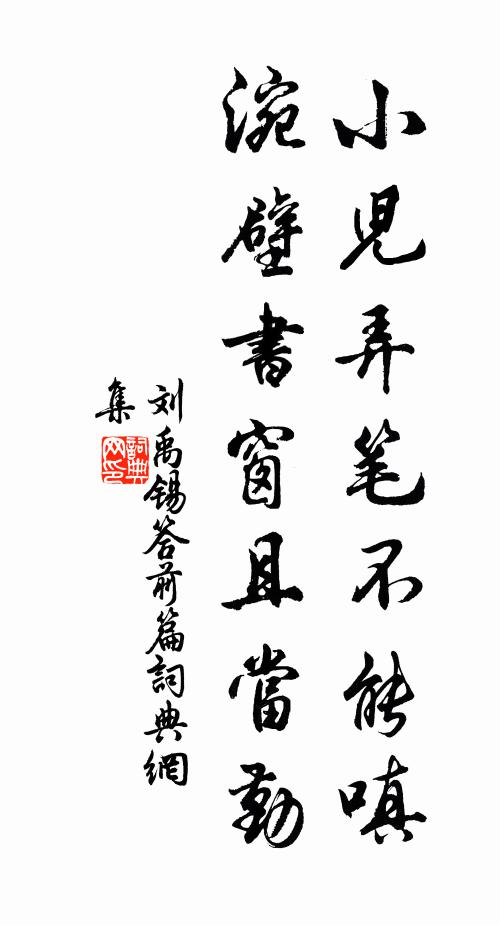 小児弄笔不能嗔
涴壁書窗且當勤
刘禹锡答前篇詞典網
集
詞典
网印